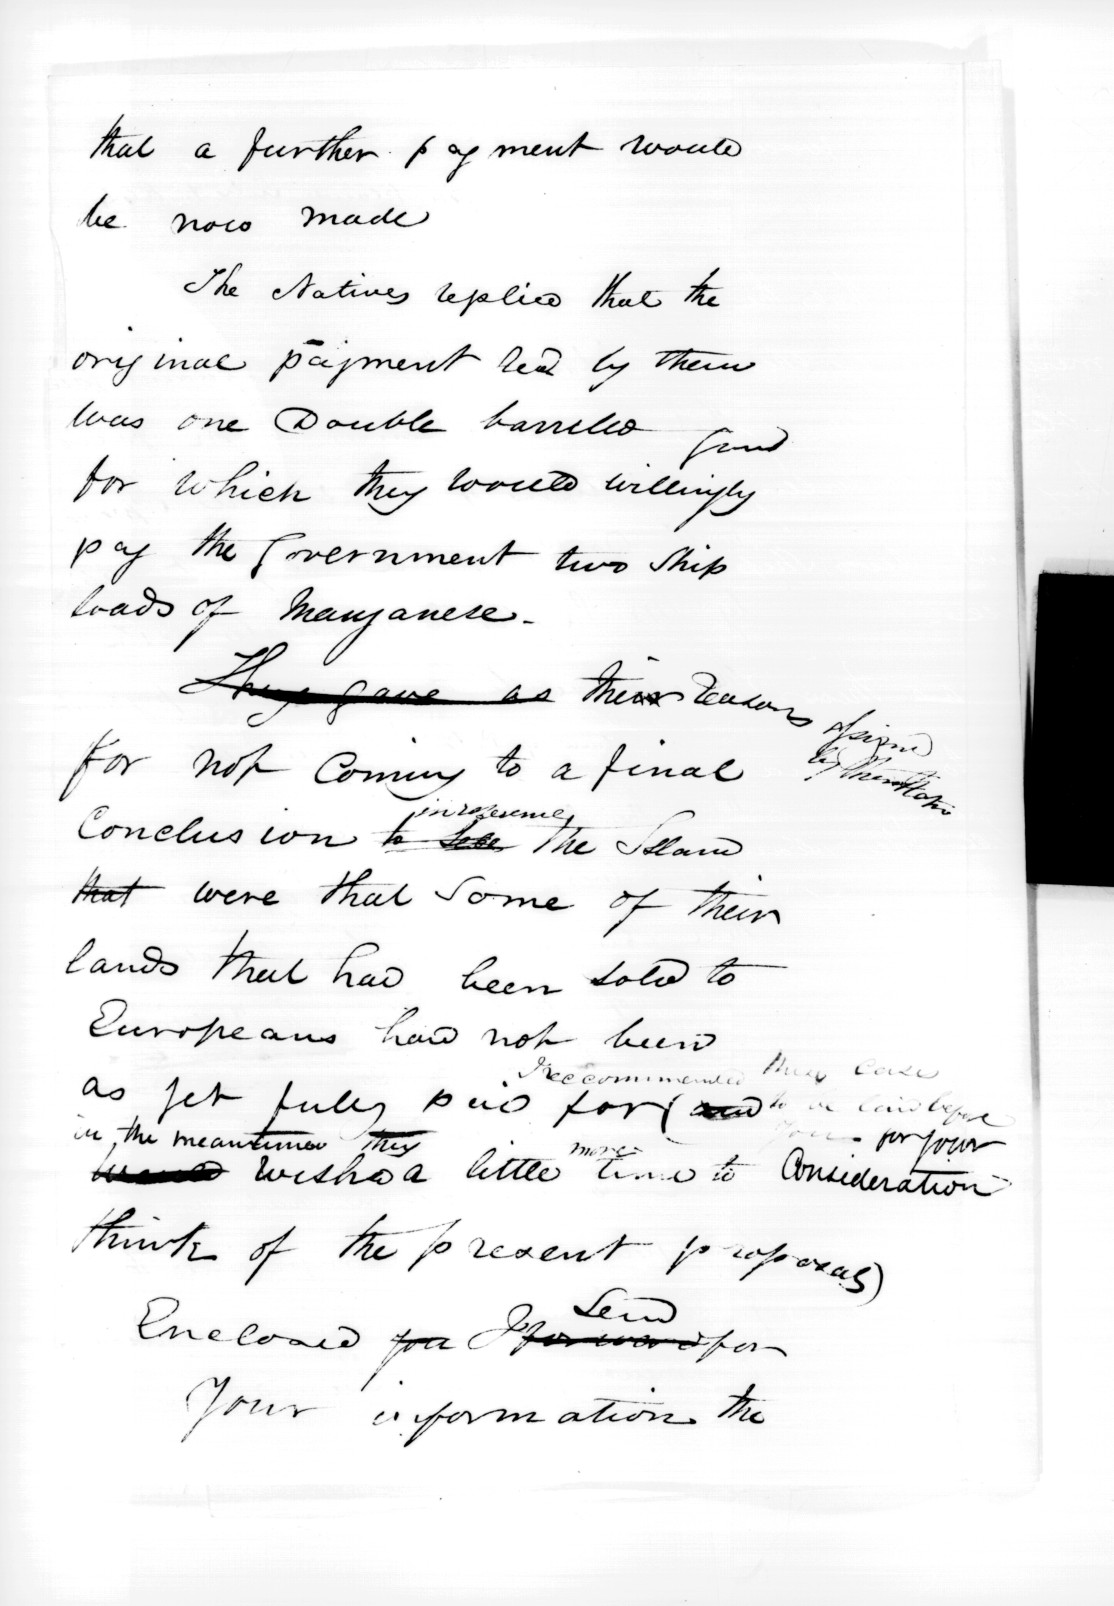 that a further payment would
be now made
The Natives replied that the
original payment recd by them
was one Double barrelled
Gund
for which they would willingly
pay the Government two Ship
loads of Manganese.
They gave as their reasons
assigned
by them
for not coming to a final
in reference
Conclusion to the Island
that were that Some of their
lands that had been sold to
Europeans had not been
I reccommended their case
as yet fully paid for (and to be laid before
you for your
in the meantime they more
would wished a little time to Consideration
think of the present proposals)
Send
Enclosed for I forward for
Your information the